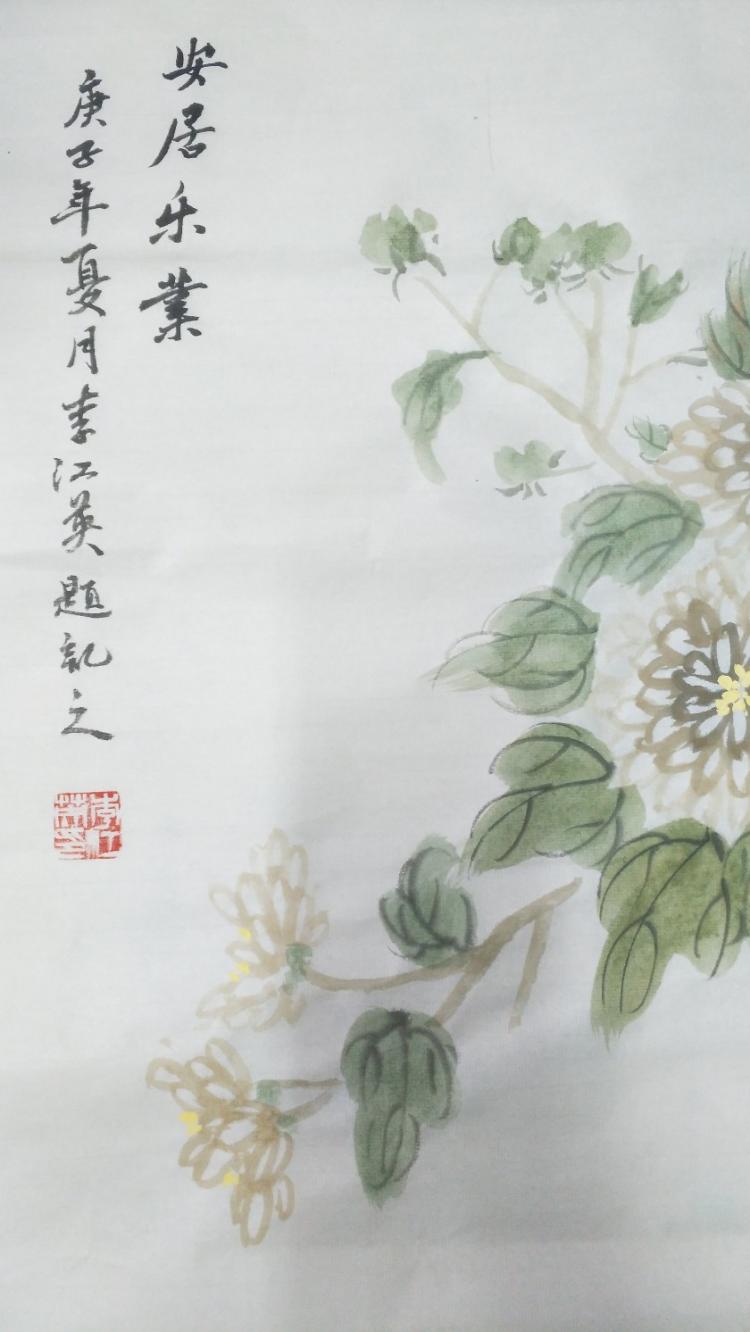 安居乐業
庚子年夏月李江英题記之